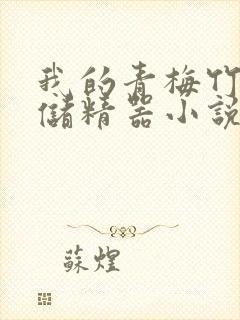 我的青梅竹
儲精器小說
蘇煌